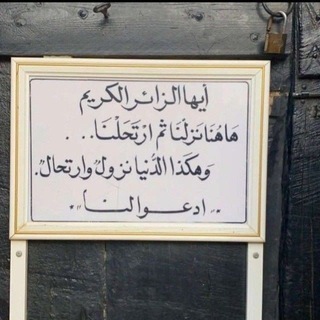 أيها الزائر الكريم
هَاهُنَا نَزَلْنَا ثم ارْتَحَلْنَا. . .
وَهكَذا الدُنيا نزولٌ وارتحالٌ.
.. ادعوا لنا ..